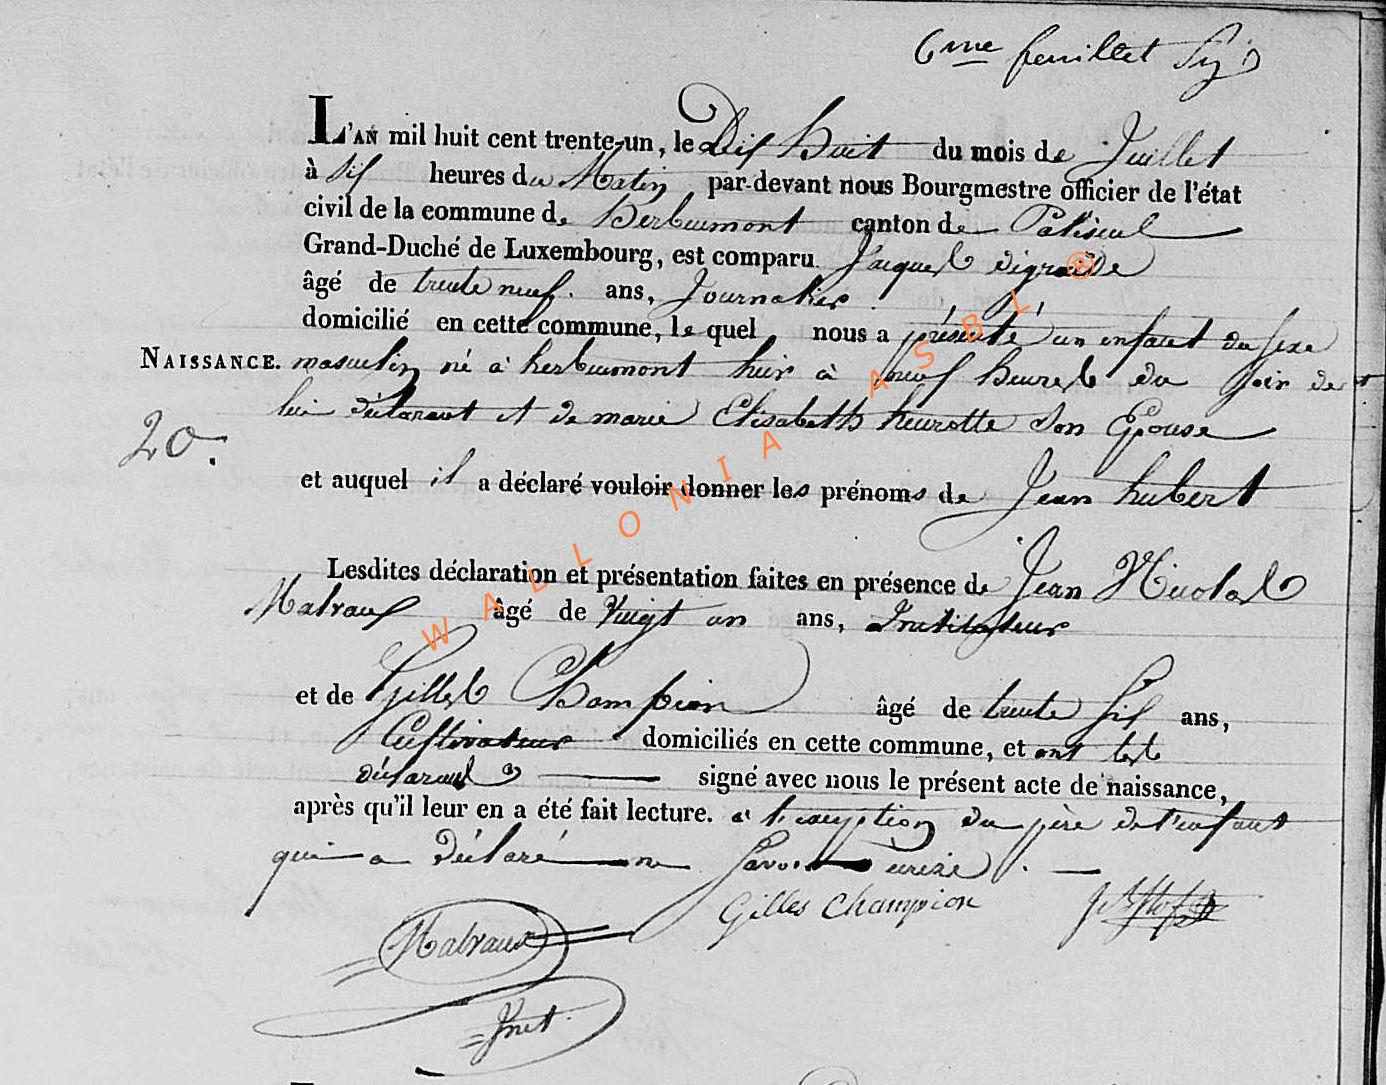 6me feuillet
L'AN mil huit cent trente-un, le Dix huit du mois de Juillet
à Six heures du Matin par-devant nous Bourgmestre officier de l'état
civil de la commune de Herbeumont canton de Paliseul
Grand-Duché de Luxembourg, est comparu Jacques digraide
âgé de trente neuf ans, Journalier
domicilié en cette commune, le quel nous a présenté un enfant du sexe
NAISSANCE. masculin né à herbeumont hier à neuf heures du soir de
lui déclarant et de marie Elisabeth heurotte Son Epouse
20.
et auquel il a déclaré vouloir donner les prénoms de Jean hubert
Lesdites déclaration et présentation faites en présence de Jean Nicolas
Malraux âgé de Vingt un ans, Instituteur
et de Gilles Champion âgé de trente Six ans,
Cultivateur domiciliés en cette commune, et ont les
déclarans signé avec nous le présent acte de naissance,
après qu'il leur en a été fait lecture. a l'exception du père de l'enfant
qui a déclaré ne Savoir Ecrire.
Gilles Champion
Malraux
Inst.
WALLONIA ASBL ®